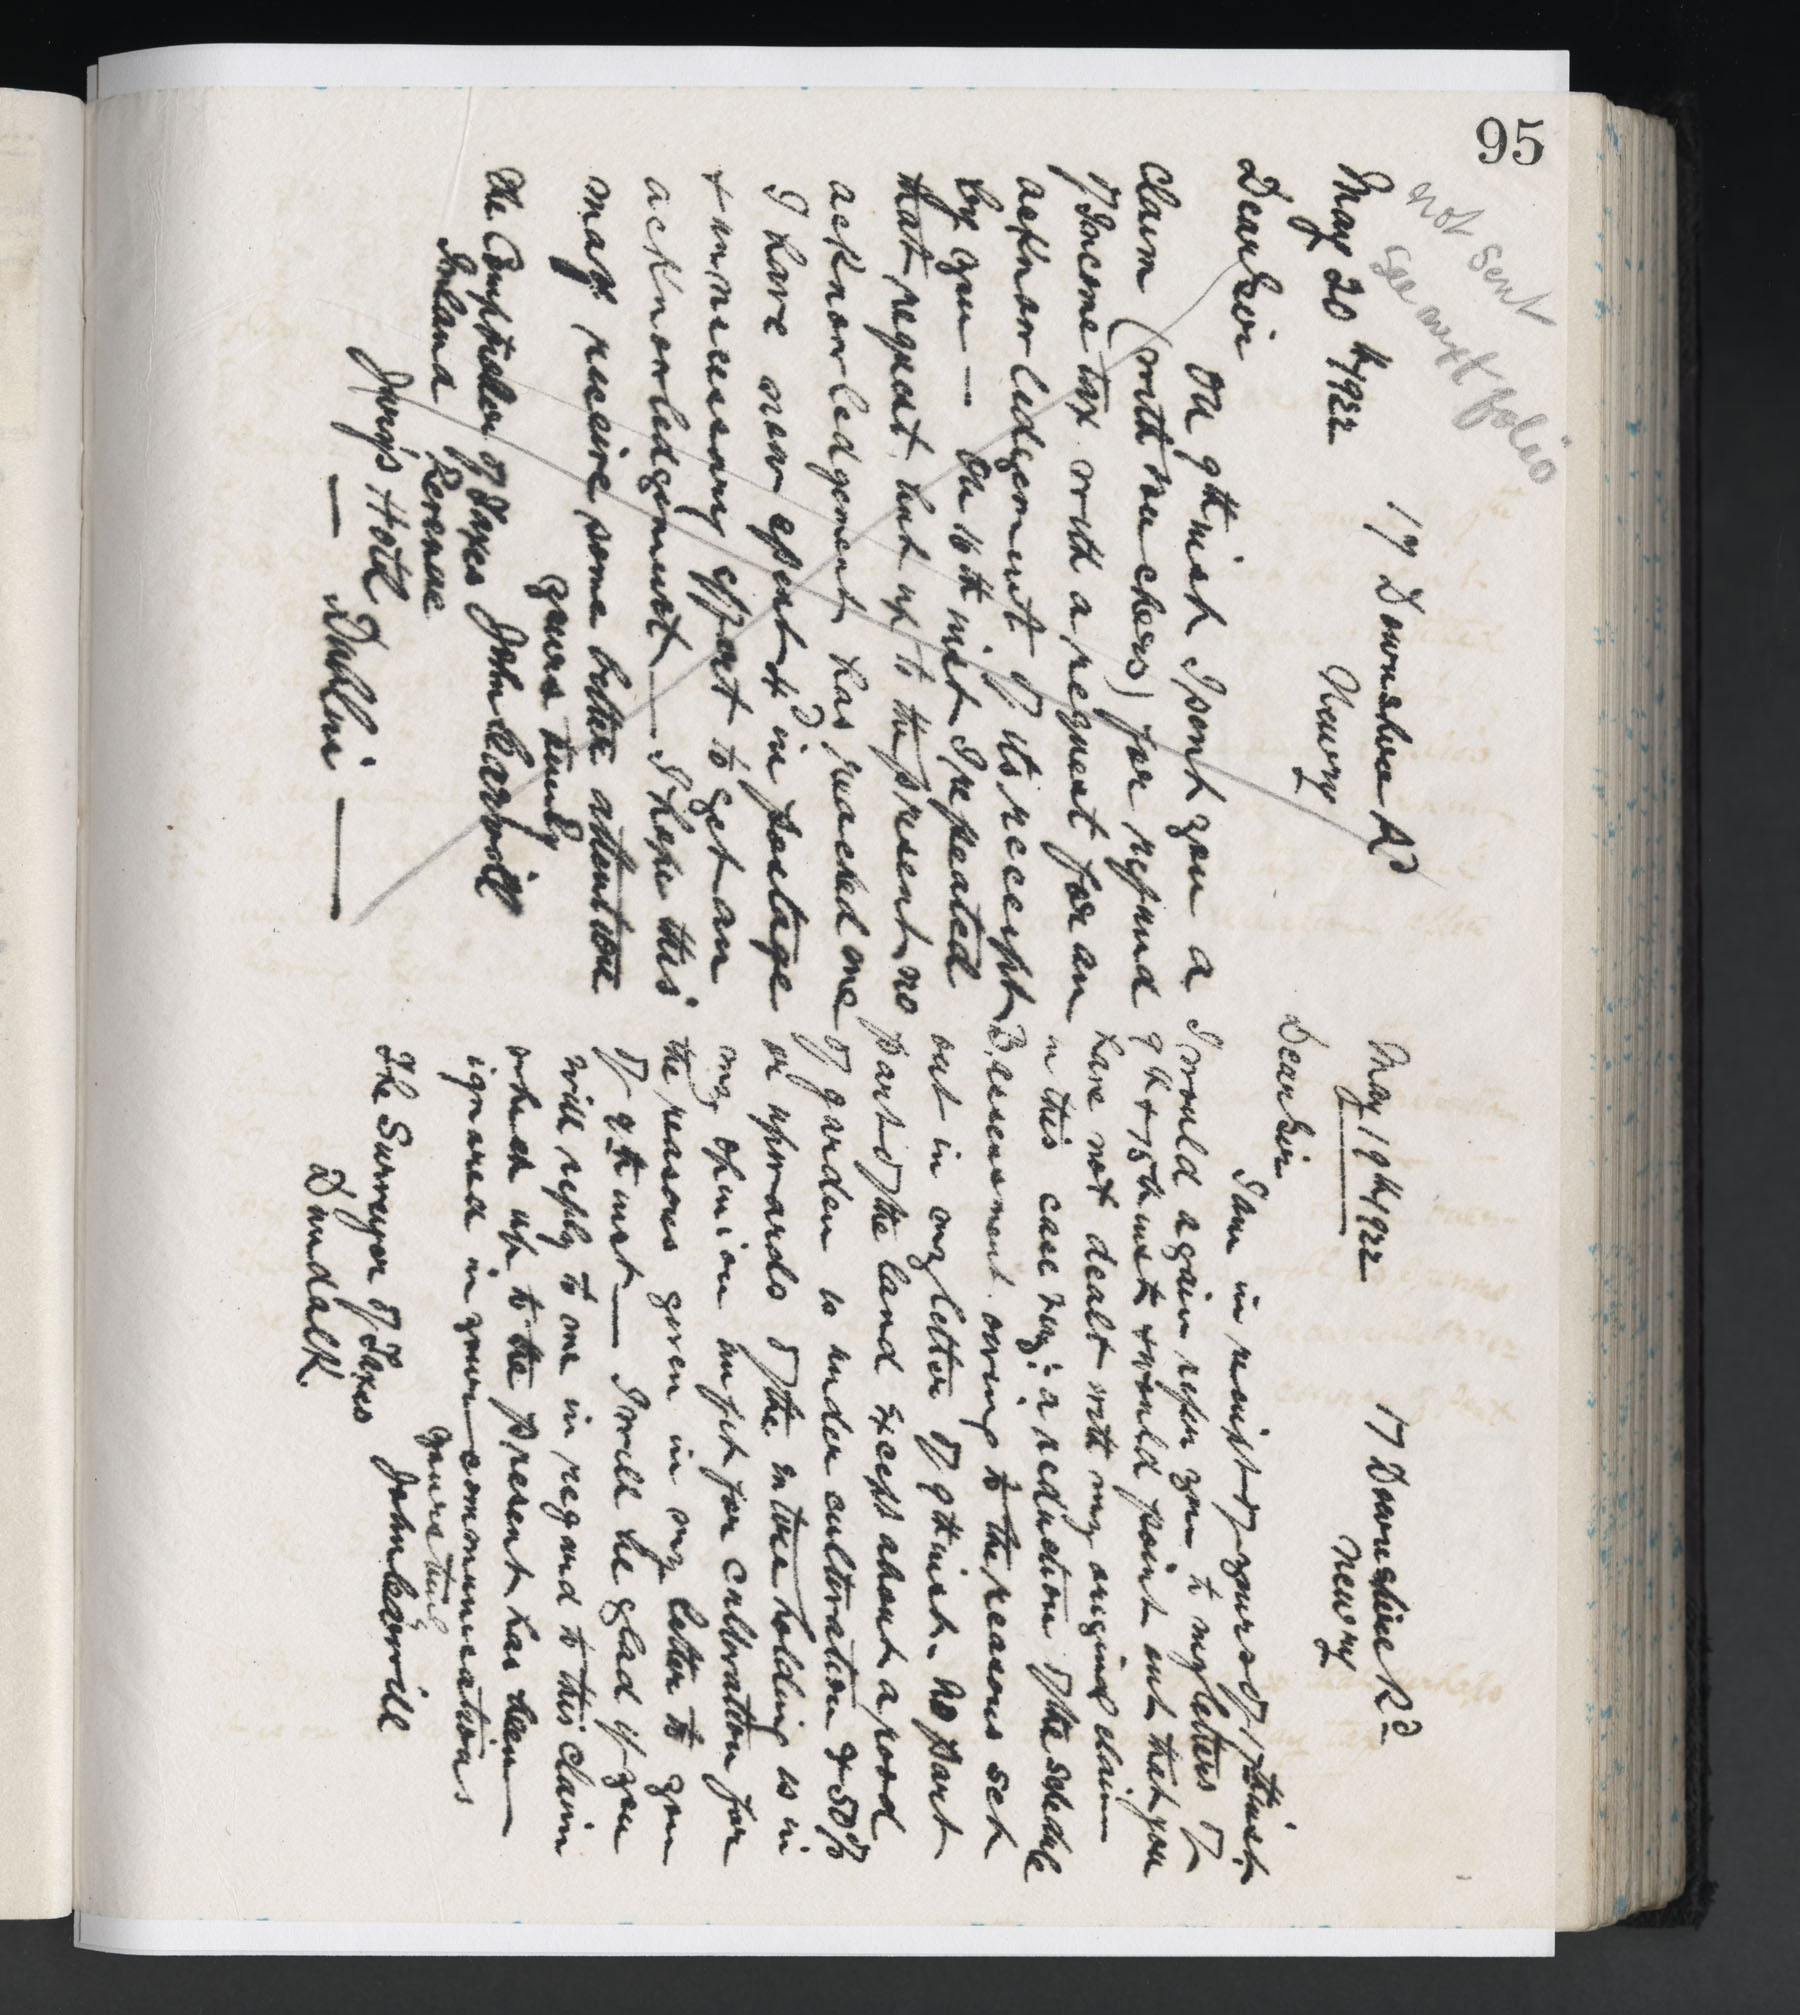 95
not sent
see next folio
17 Downshire Rd
Newry
May 20th 1922
Dear Sir
On 9th inst I sent you a
claim (with vouchers) for refund
of Income tax with a request for an
acknowledgement of its receipt
by you — On 16th inst I repeated
that request but up to the present no
acknowledgement has reached me
I have now spent in postage
& unnecessary effort to get an
acknowledgement — I hope this
may receive some better attention
yours truly
John Carvill
The Comptroller of Taxes
Inland Revenue
Jury's Hotel
— Dublin —
17 Downshire Rd
Newry
May 19th 1922
Dear Sir
I am in receipt of yours of 17th inst
I would again refer you to my letters of
9th & 15th inst & would point out that you
have not dealt with my original claim
in this case viz: a reduction of the schedule
B. assessment owing to the reasons set
out in my letter of 9th inst. No part
part of the land except about a rood
of garden is under cultivation & 50%
or upwards of the entire holding is in
my opinion unfit for cultivation for
the reasons given in my letter to you
of 9th inst — I will be glad if you
will reply to me in regard to this claim
which up to the present has been
ignored in your communications
yours truly
John Carvill
The Surveyor of Taxes
Dundalk.